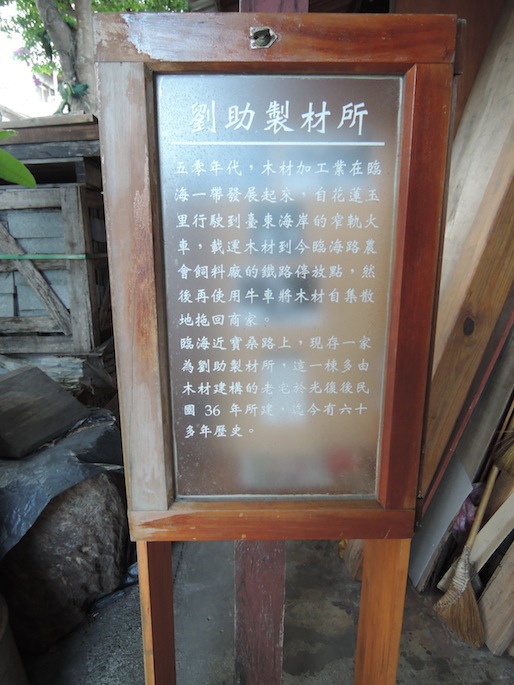 劉助製材所
五零年代，木材加工業在臨
海一帶發展起來，自花蓮玉
里行駛到臺東海岸的窄軌火
車，載運木材到今臨海路農
會飼料廠的鐵路停放點，然
後再使用牛車將木材自集散
地拖回商家。
臨海近寶桑路上，現存一家
為劉助製材所，這一棟多由
木材建構的老宅於光復後民
國 36 年所建，迄今有六十
多年歷史。